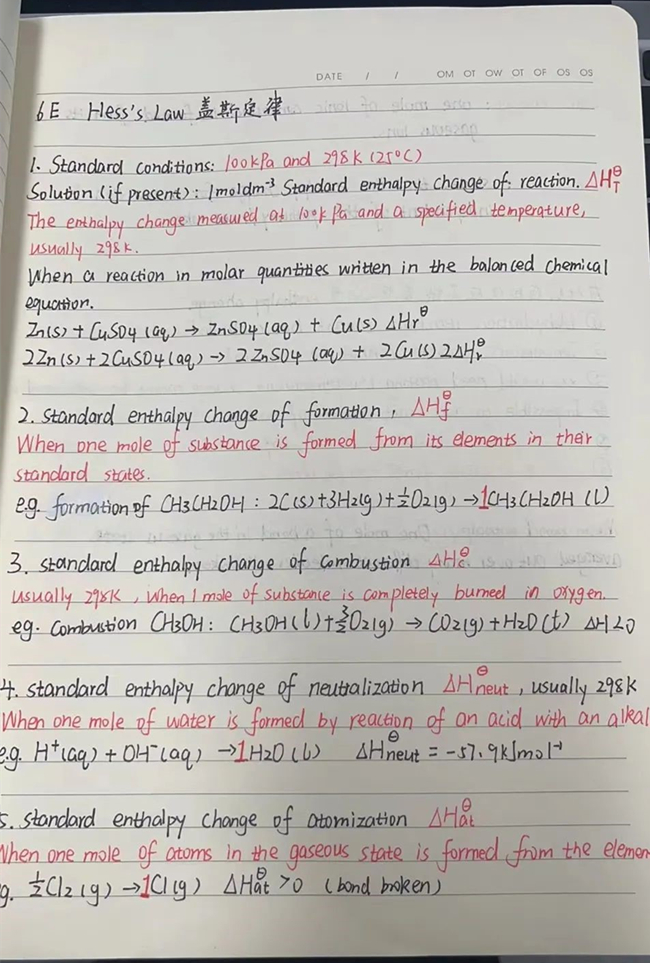 DATE / / OM OT OW OT OF OS OS
6E Hess's Law 盖斯定律
1. Standard conditions: 100kPa and 298K (25°C)
Solution (if present): 1moldm⁻³ Standard enthalpy change of reaction. ΔHᶿT
The enthalpy change measured at 100kPa and a specified temperature,
usually 298K.
When a reaction in molar quantities written in the balanced chemical
equation.
Zn(s) + CuSO4 (aq) → ZnSO4 (aq) + Cu(s) ΔHrᶿ
2Zn(s) + 2CuSO4(aq) → 2ZnSO4 (aq) + 2Cu(s) 2ΔHrᶿ
2. Standard enthalpy change of formation, ΔHfᶿ
When one mole of substance is formed from its elements in their
standard states.
e.g. formation of CH3CH2OH : 2C(s)+3H2(g)+½O2(g) →1CH3CH2OH (l)
3. standard enthalpy change of combustion ΔHcᶿ
usually 298K, when 1 mole of substance is completely burned in oxygen.
eg. Combustion CH3OH: CH3OH(l)+3/2O2(g) → CO2(g)+H2O(l) ΔH<0
4. standard enthalpy change of neutralization ΔHᶿneut, usually 298K
When one mole of water is formed by reaction of an acid with an alkal
e.g. H⁺(aq) + OH⁻(aq) →1H2O (l) ΔHᶿneut = -57.9kJmol⁻¹
5. Standard enthalpy change of atomization ΔHᶿat
When one mole of atoms in the gaseous state is formed from the elemen
g. ½Cl2 (g) →1Cl(g) ΔHᶿat >0 (bond broken)